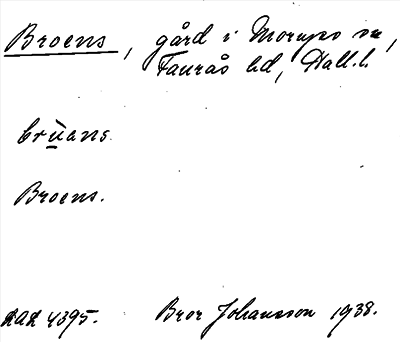 Broens, gård i Morups sn,
Faurås hd, Hall.l.
brùans.
Broens.
AAL 4395. Bror Johansson 1938.